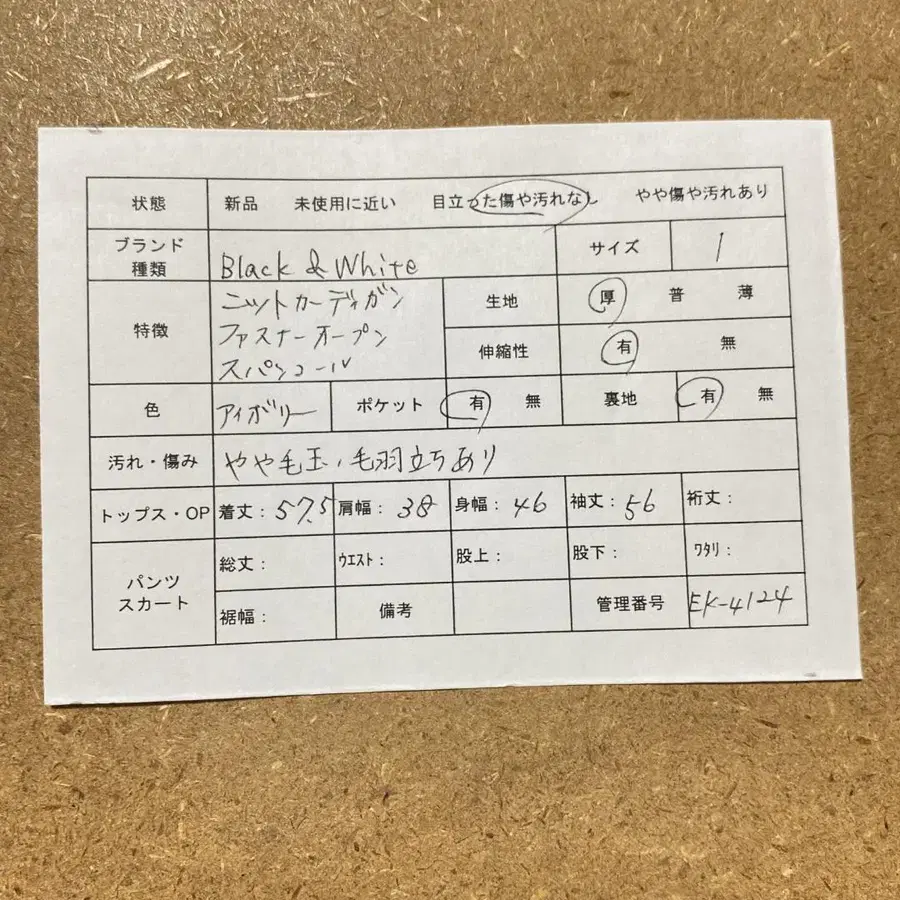 状態 新品 未使用に近い 目立った傷や汚れなし やや傷や汚れあり
ブランド
種類 Black & White サイズ 1
特徴 ニットカーディガン
ファスナーオープン
スパンコール
生地 厚 普 薄
伸縮性 有 無
色 アイボリー ポケット 有 無 裏地 有 無
汚れ・傷み やや毛玉、毛羽立ちあり
トップス・OP 着丈: 57.5 肩幅: 38 身幅: 46 袖丈: 56 裄丈:
パンツ
スカート
総丈: ウエスト: 股上: 股下: ワタリ:
裾幅: 備考 管理番号 EK-4124